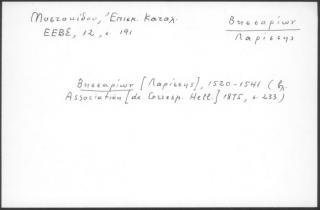 Μυστακίδου, Ἐπισκ. Καταλ.
ΕΕΒΣ, 12, σ 191
Βησσαρίων
Λαρίσσης
Βησσαρίων [Λαρίσσης], 1520-1541 (βλ.
Association [de Corresp. Hell.] 1875, σ 233)